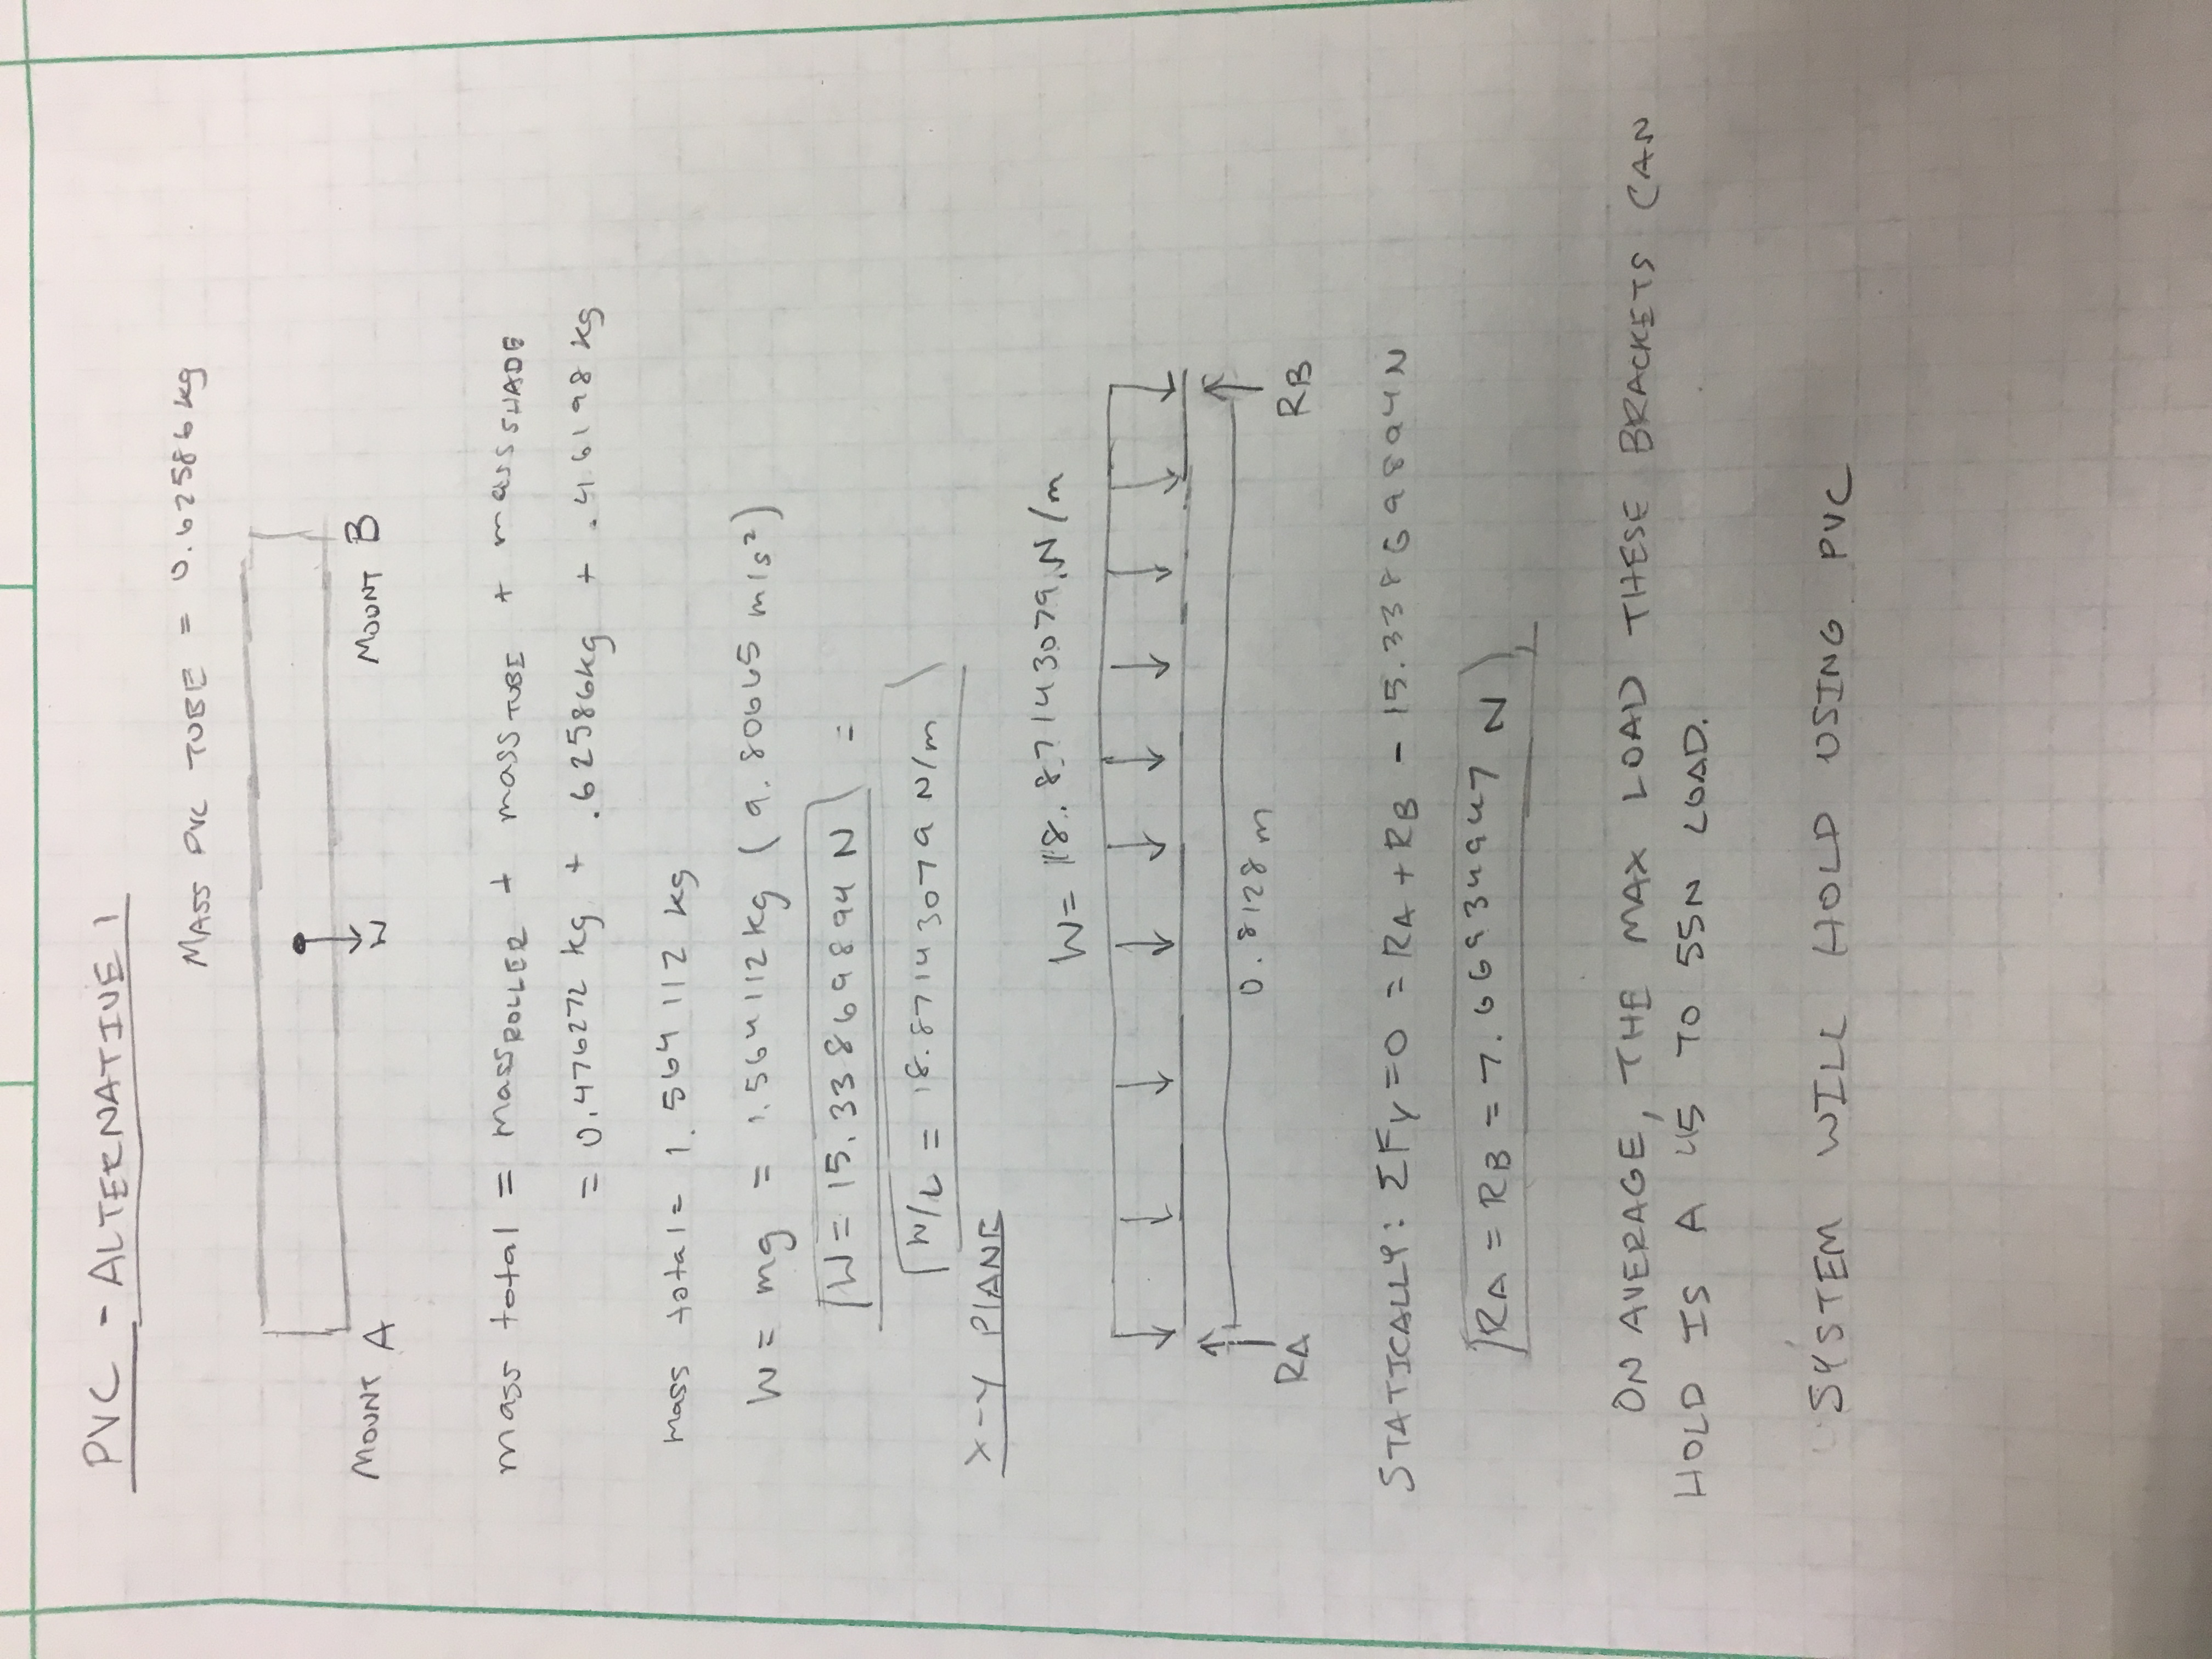 PVC - ALTERNATIVE 1
MASS PVC TUBE = 0.62586 kg
MOUNT A
W
MOUNT B
mass total = mass ROLLER + mass TUBE + mass SHADE
= 0.476272 kg + .62586kg + .46198 kg
mass total = 1.564112 kg
W = mg = 1.564112 kg (9.80665 m/s²)
W = 15.33869894 N =
W/L = 18.87143079 N/m
X-Y PLANE
W = 18.87143079 N/m
0.8128 m
RA
RB
STATICALLY: ΣFy = 0 = RA + RB - 15.33869894 N
RA = RB = 7.66934947 N
ON AVERAGE, THE MAX LOAD THESE BRACKETS CAN
HOLD IS A 45 TO 55N LOAD.
SYSTEM WILL HOLD USING PVC